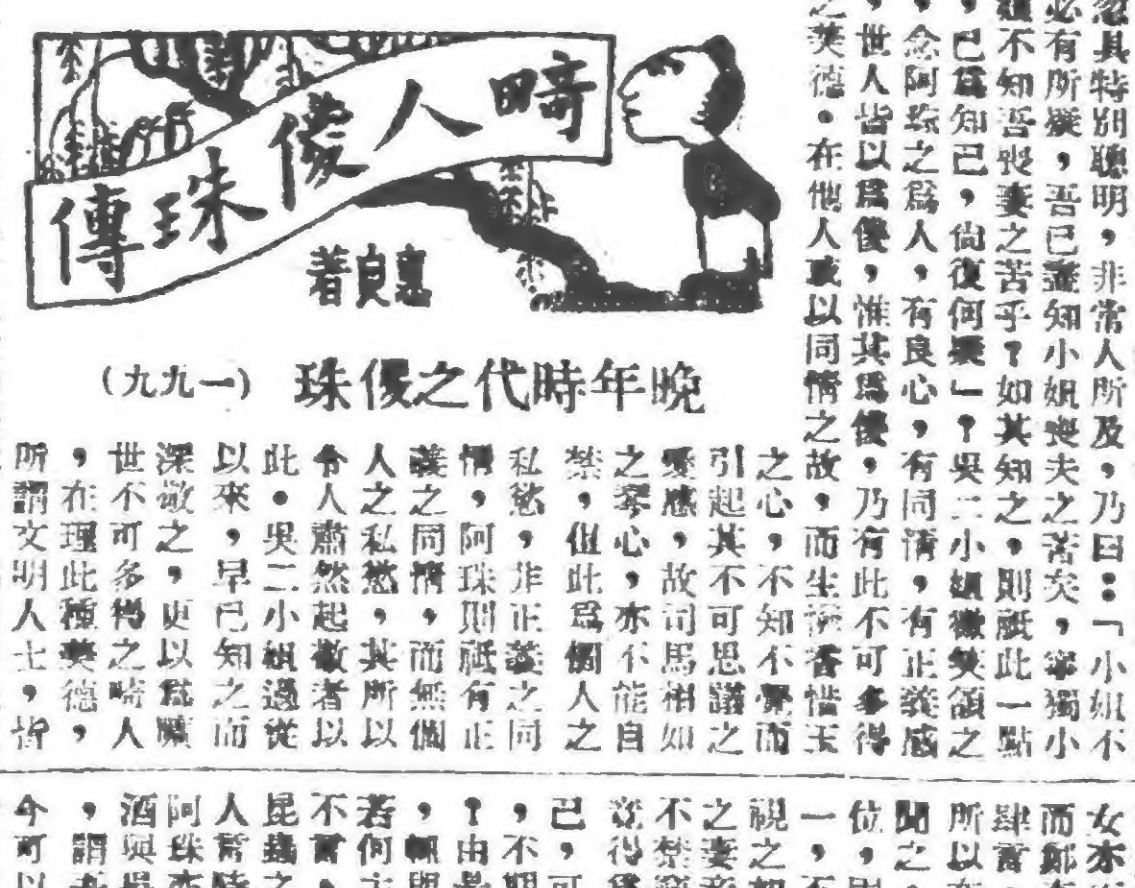 畸人儍珠傳
惠良着
晚年時代之儍珠
(一九九)
忽具特別聰明,非常人所及,乃曰:「小姐不
必有所疑,吾已證知小姐喪夫之苦矣,寧獨小
姐不知吾喪妻之苦乎?如其知之,則祗此一點
,已爲知己,尙復何疑」?吳二小姐微笑頷之
,念阿珠之爲人,有良心,有同情,有正義感
,世人皆以爲儍,惟其爲儍,乃有此不可多得
之美德。在他人或以同情之故,而生憐香惜玉
之心,不知不覺而
引起其不可思議之
愛感,故司馬相如
之琴心,亦不能自
禁,但此爲個人之
私慾,非正義之同
情,阿珠則祗有正
義之同情,而無個
人之私慾,其所以
令人肅然起敬者以
此。吳二小姐過從
以來,早已知之而
深敬之,更以爲曠
世不可多得之畸人
,在理此種美德,
所謂文明人士,皆
女亦
而鄭
肆言
所以
聞之
位,
一,不
視之如
之妻
不禁
竟得
己,可
,不期
?由
若何
不言,
昆蟲之
人言
阿珠亦
酒與吳
,謂
今可以